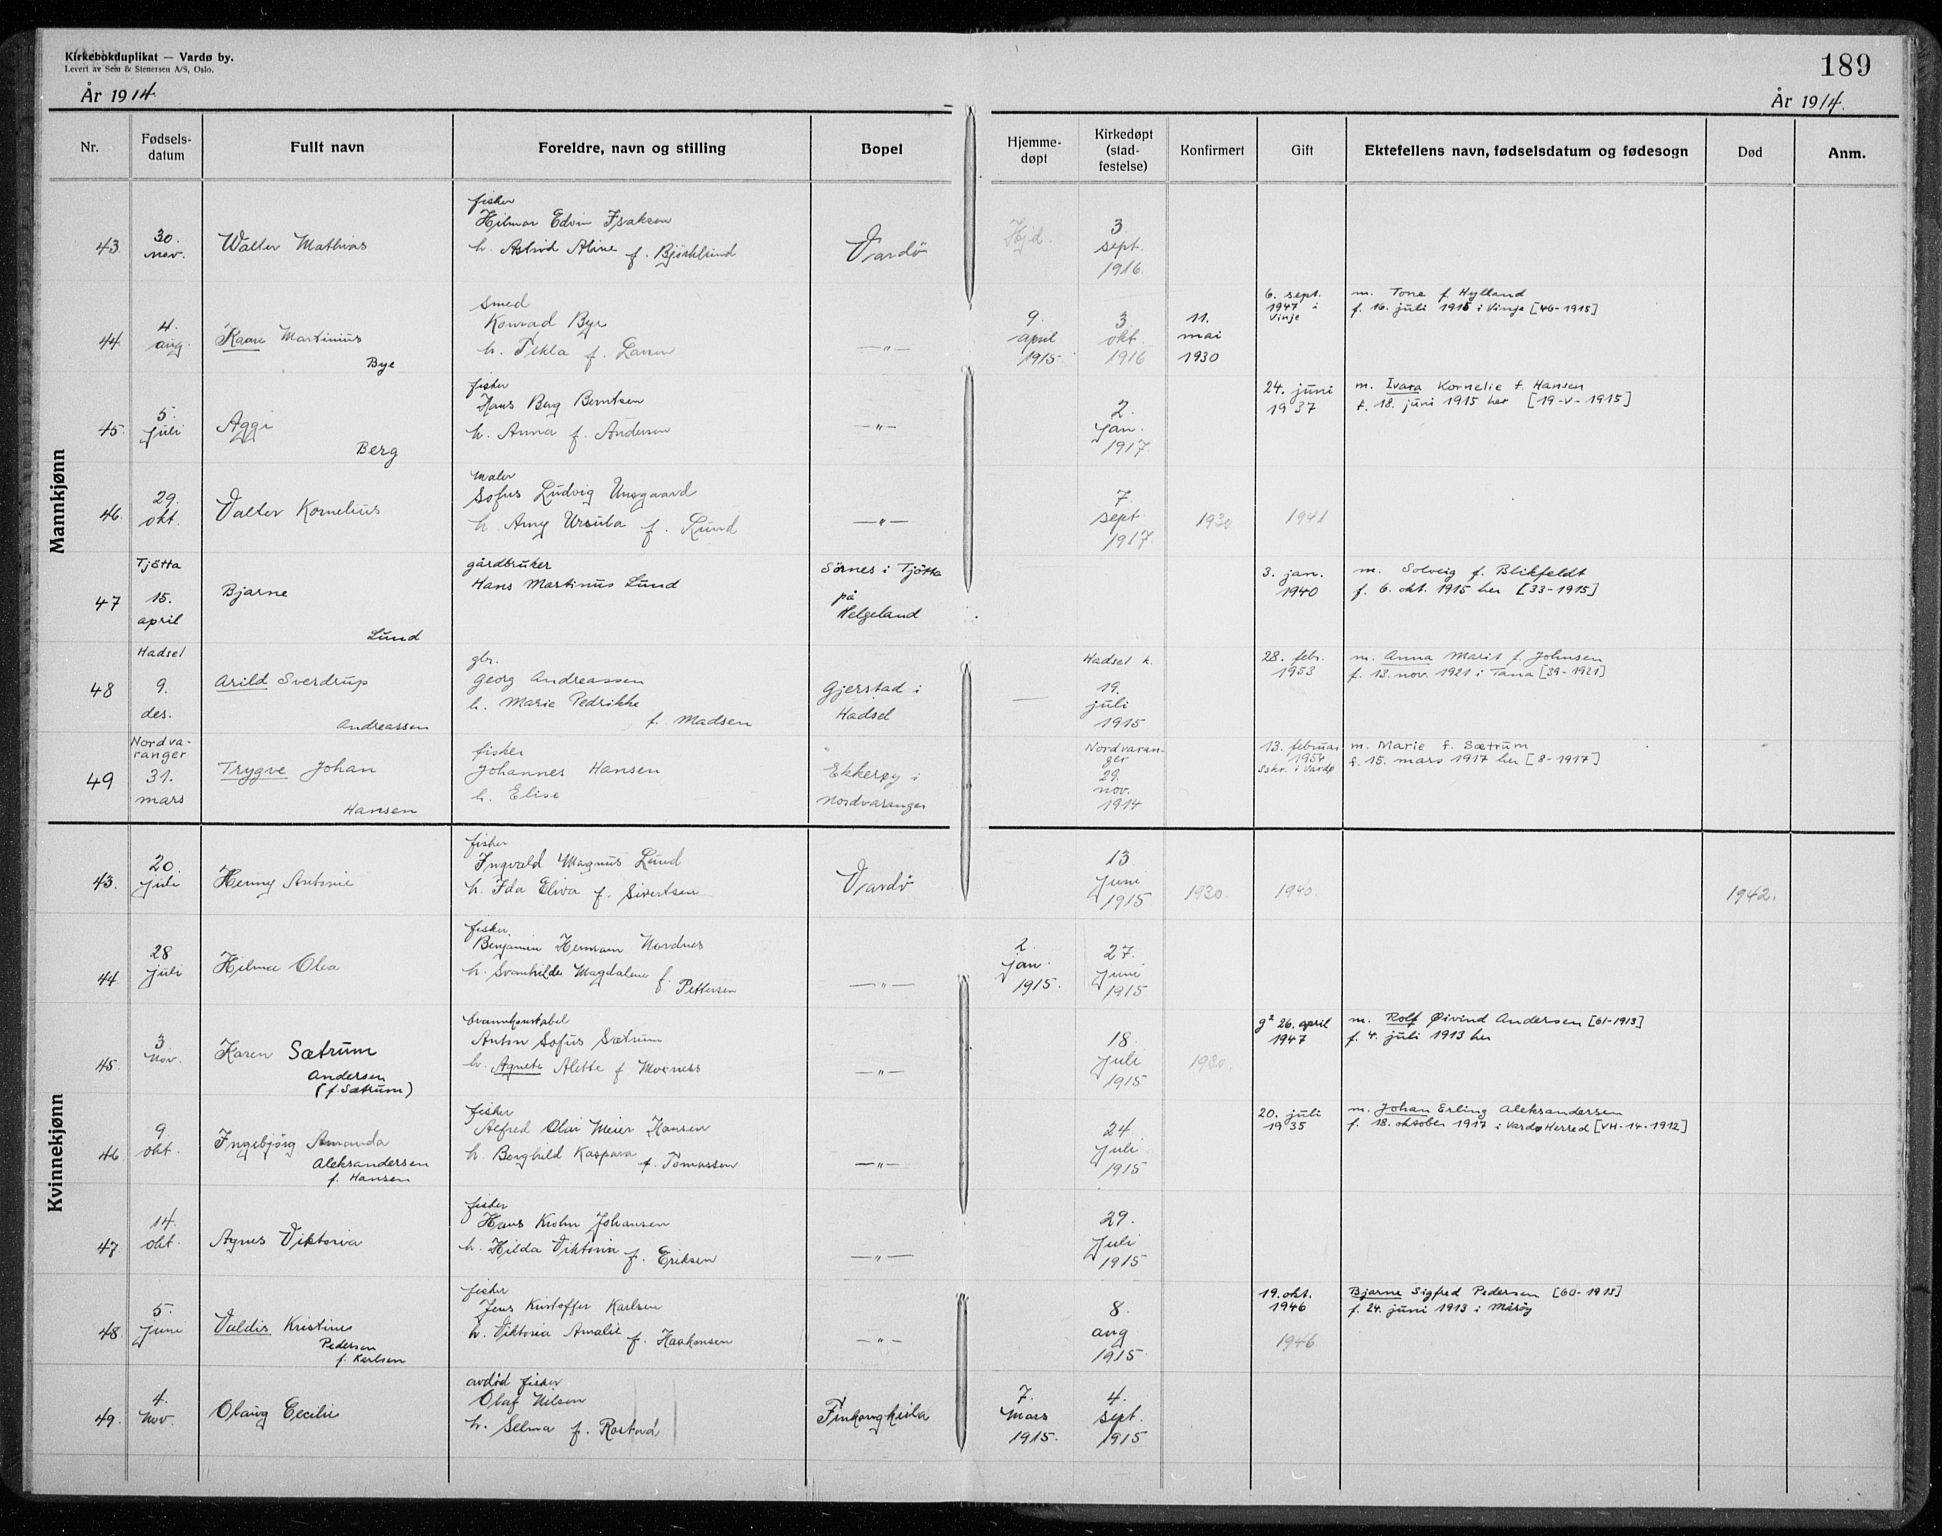 Kirkebokduplikat — Vardø by.
Levert av Sem & Stenersen A/S, Oslo.
189
År 1914
År 1914.
Nr.
Fødsels-
datum
Fullt navn
Foreldre, navn og stilling
Bopel
Hjemme-
døpt
Kirkedøpt
(stad-
festelse)
Konfirmert
Gift
Ektefellens navn, fødselsdatum og fødesogn
Død
Anm.
Mannkjønn
43.
30.
nov.
Walter Mathias
fisker
Hilmar Edvin Isaksen
h. Astrid Aline f. Bjørklund
Vardø
Hjd.
3.
sept.
1916.
44.
4.
aug.
Kaare Martinius
Bye
Smed
Konrad Bye
h. Tekla f. Larsen
— " —
9.
april
1915.
3.
okt.
1916
11.
mai
1930
6. sept.
1947 i
Vinje
m. Tone f. Hylland
f. 16. juli 1915 i Vinje [46-1915]
45.
5.
juli
Aggi
Berg
fisker
Hans Berg Berntsen
h. Anna f. Andersen
— " —
2.
jan.
1917.
24. juni
1937
m. Ivara Kornelie f. Hansen
f. 18. juni 1915 her [19-V-1915]
46.
29.
okt.
Valter Kornelius
maler
Sofus Ludvig Unsgaard
h. Amy Ursula f. Lund
— " —
7.
sept.
1917.
1930
1941
47
Tjøtta
15.
april
Bjarne
Lund
gårdbruker
Hans Martinus Lund
Sørnes i Tjøtta
på
Helgeland
3. jan.
1940
m. Solveig f. Blikfeldt
f. 6. okt. 1915 her [33-1915]
48
Hadsel
9.
des.
Arild Sverdrup
Andreassen
gbr.
Georg Andreassen
h. Marie Pedrikke
f. Madsen
Gjerstad i
Hadsel
—
Hadsel k.
19.
juli
1915
28. febr.
1953
m. Anna Marit f. Johnsen
f. 13. nov. 1921 i Tana [39-1921]
49
Nordva-
ranger
31.
mars
Trygve Johan
Hansen
fisker
Johannes Hansen
h. Elise
Ekkerøy i
Nordvaranger
Nordvaran-
ger
29.
nov.
1914
13. februar
1954
Sskr. i Vardø
m. Marie f. Sætrum
f. 15. mars 1917 her [8-1917]
Kvinnekjønn
43.
20.
juli
Henny Antonie
fisker
Ingvald Magnus Lund
h. Ida Eliva f. Sivertsen
Vardø
13
juni
1915
1930.
1940.
1942.
44
28
juli
Hilma Olea
fisker
Benjamin Hermann Nordnes
h. Svanhilde Magdalene f. Pettersen
— " —
2.
jan.
1915.
27.
juni
1915
45.
3.
nov.
Karen Sætrum
Andersen
(f. Sætrum)
brannkonstabel
Anton Sofus Sætrum
h. Agnete Alette f. Morness
— " —
18.
juli
1915
1930.
g² 26. april
1947
m. Rolf Øivind Andersen [61-1913]
f. 4. juli 1913 her
46.
9
okt.
Ingebjörg Amanda
Aleksandersen
f. Hansen
fisker
Alfred Olai Meier Hansen
h. Borghild Kaspara f. Tomassen
— " —
24
juli
1915
20. juli
1935
m. Johan Erling Aleksandersen
f. 18. oktober 1917 i Vardø Herred [VH-14-1912]
47.
14.
okt.
Agnes Viktoria
fisker
Hans Krohn Johansen
h. Hilda Viktoria f. Eriksen
— " —
29.
juli
1915
48.
5.
juni
Valdis Kristine
Pedersen
f. Karlsen
fisker
Jens Kristoffer Karlsen
h. Viktoria Amalie f. Haakonsen
— " —
8.
aug
1915.
19. okt.
1946
1946
Bjarne Sigfred Pedersen [60-1913]
f. 24. juni 1913 i Måsøy
49.
4.
nov.
Olaug Cecilie
avdød fisker
Olaf Nilsen
h. Selma f. Rostad
Finkongkeila
7.
Mars
1915.
4.
sept.
1915